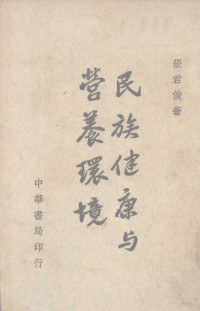 張君俊著
民族健康与
營養環境
中華書局印行